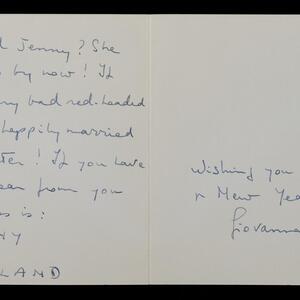 d Jenny? She
by now! If
ny bad red-headed
happily married
ter! If you have
ear from you
ss is:
NY
LAND
Wishing you
New Yea
Giovanna